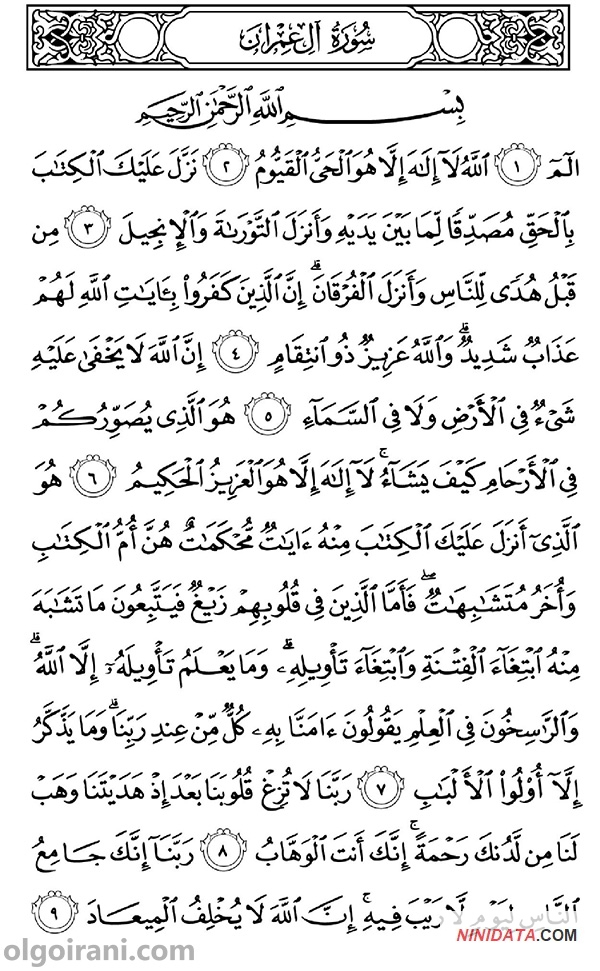 سُورَةُ آلِ عِمْرَانَ
بِسْمِ اللَّهِ الرَّحْمَٰنِ الرَّحِيمِ
الٓمٓ ١ اللَّهُ لَآ إِلَٰهَ إِلَّا هُوَ الْحَيُّ الْقَيُّومُ ٢ نَزَّلَ عَلَيْكَ الْكِتَابَ
بِالْحَقِّ مُصَدِّقًا لِّمَا بَيْنَ يَدَيْهِ وَأَنزَلَ التَّوْرَىٰةَ وَالْإِنجِيلَ ٣ مِن
قَبْلُ هُدًى لِّلنَّاسِ وَأَنزَلَ الْفُرْقَانَ ۗ إِنَّ الَّذِينَ كَفَرُوا۟ بِـَٔايَاتِ اللَّهِ لَهُمْ
عَذَابٌ شَدِيدٌ ۗ وَاللَّهُ عَزِيزٌ ذُو انتِقَامٍ ٤ إِنَّ اللَّهَ لَا يَخْفَىٰ عَلَيْهِ
شَىْءٌ فِي الْأَرْضِ وَلَا فِي السَّمَآءِ ٥ هُوَ الَّذِي يُصَوِّرُكُمْ
فِي الْأَرْحَامِ كَيْفَ يَشَآءُ ۚ لَآ إِلَٰهَ إِلَّا هُوَ الْعَزِيزُ الْحَكِيمُ ٦ هُوَ
الَّذِىٓ أَنزَلَ عَلَيْكَ الْكِتَابَ مِنْهُ ءَايَاتٌ مُّحْكَمَاتٌ هُنَّ أُمُّ الْكِتَابِ
وَأُخَرُ مُتَشَابِهَاتٌ ۖ فَأَمَّا الَّذِينَ فِي قُلُوبِهِمْ زَيْغٌ فَيَتَّبِعُونَ مَا تَشَابَهَ
مِنْهُ ابْتِغَآءَ الْفِتْنَةِ وَابْتِغَآءَ تَأْوِيلِهِۦ ۗ وَمَا يَعْلَمُ تَأْوِيلَهُۥٓ إِلَّا اللَّهُ ۗ
وَالرَّاسِخُونَ فِي الْعِلْمِ يَقُولُونَ ءَامَنَّا بِهِۦ كُلٌّ مِّنْ عِندِ رَبِّنَا ۗ وَمَا يَذَّكَّرُ
إِلَّآ أُو۟لُوا۟ الْأَلْبَابِ ٧ رَبَّنَا لَا تُزِغْ قُلُوبَنَا بَعْدَ إِذْ هَدَيْتَنَا وَهَبْ
لَنَا مِن لَّدُنكَ رَحْمَةً ۚ إِنَّكَ أَنتَ الْوَهَّابُ ٨ رَبَّنَآ إِنَّكَ جَامِعُ
النَّاسِ لِيَوْمٍ لَّا رَيْبَ فِيهِ ۚ إِنَّ اللَّهَ لَا يُخْلِفُ الْمِيعَادَ ٩
olgoirani.com
NINIDATA.COM